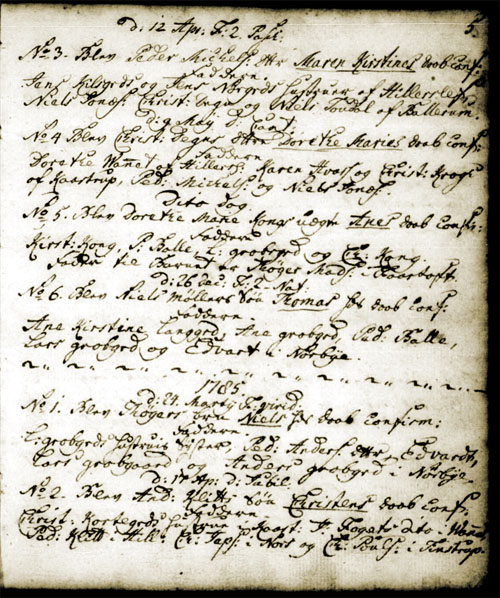 5.
d: 12 Apr: F: 2 Pask:
No 3. Blev Peder Michels: dtr Maren Kirstines daab conf:
Faddern
Jens Kilsgrds og Jens Nørgrds hustruer af Hillerslef
Niels Jensø: Christ: Degn og Niels Toudal af Ballerum.
d: 9 Maj D: Cant:
No 4 Blev Christ: Degns dtr Dorethe Maries daab conf:
Faddern
Dorethe af Hillersl: Karen Hvas og Christ: Krogs
af Kaastrup, Ped: Michels: og Niels Jensø:
Dito dag
No 5. Blev Dorethe Marie Kongs uægte Anes daab conf:
Faddern
Kirst: Kong, P: Balle, L: grobgrd og Chr: Kong.
Fader til Barnet er Thoger Mads: i Kaartoft
d: 26 Dec: F: 2 Nat:
No 6. Blev Niels Møllers Søn Thomas hs daab conf:
Faddern
Ane Kirstine Langgrd, Ane grobgrd, Ped: Balle,
Lars grobgrd og Edvart i Nørbye.
1785
d: 24 Marty F: virid:
No 1. Blev Thogers Søn Niels hs daab confirm:
Faddern
L: grobgrds hustrues Sister, Ped: Anders: dtr, Edvardt,
Lars grobgaard og Anders grobgrd i Nørbye
d: 17 Apr: D: Jubil:
No 2. Blev And: Kletts Søn Christens daab conf:
Faddern
Christ: Kortegrds hustrue i Kaast: F: Fogets dito:
Ped: Klett i Hill: Chr: Jeps: i Nors og Chr: Pouls: i Tinstrup.